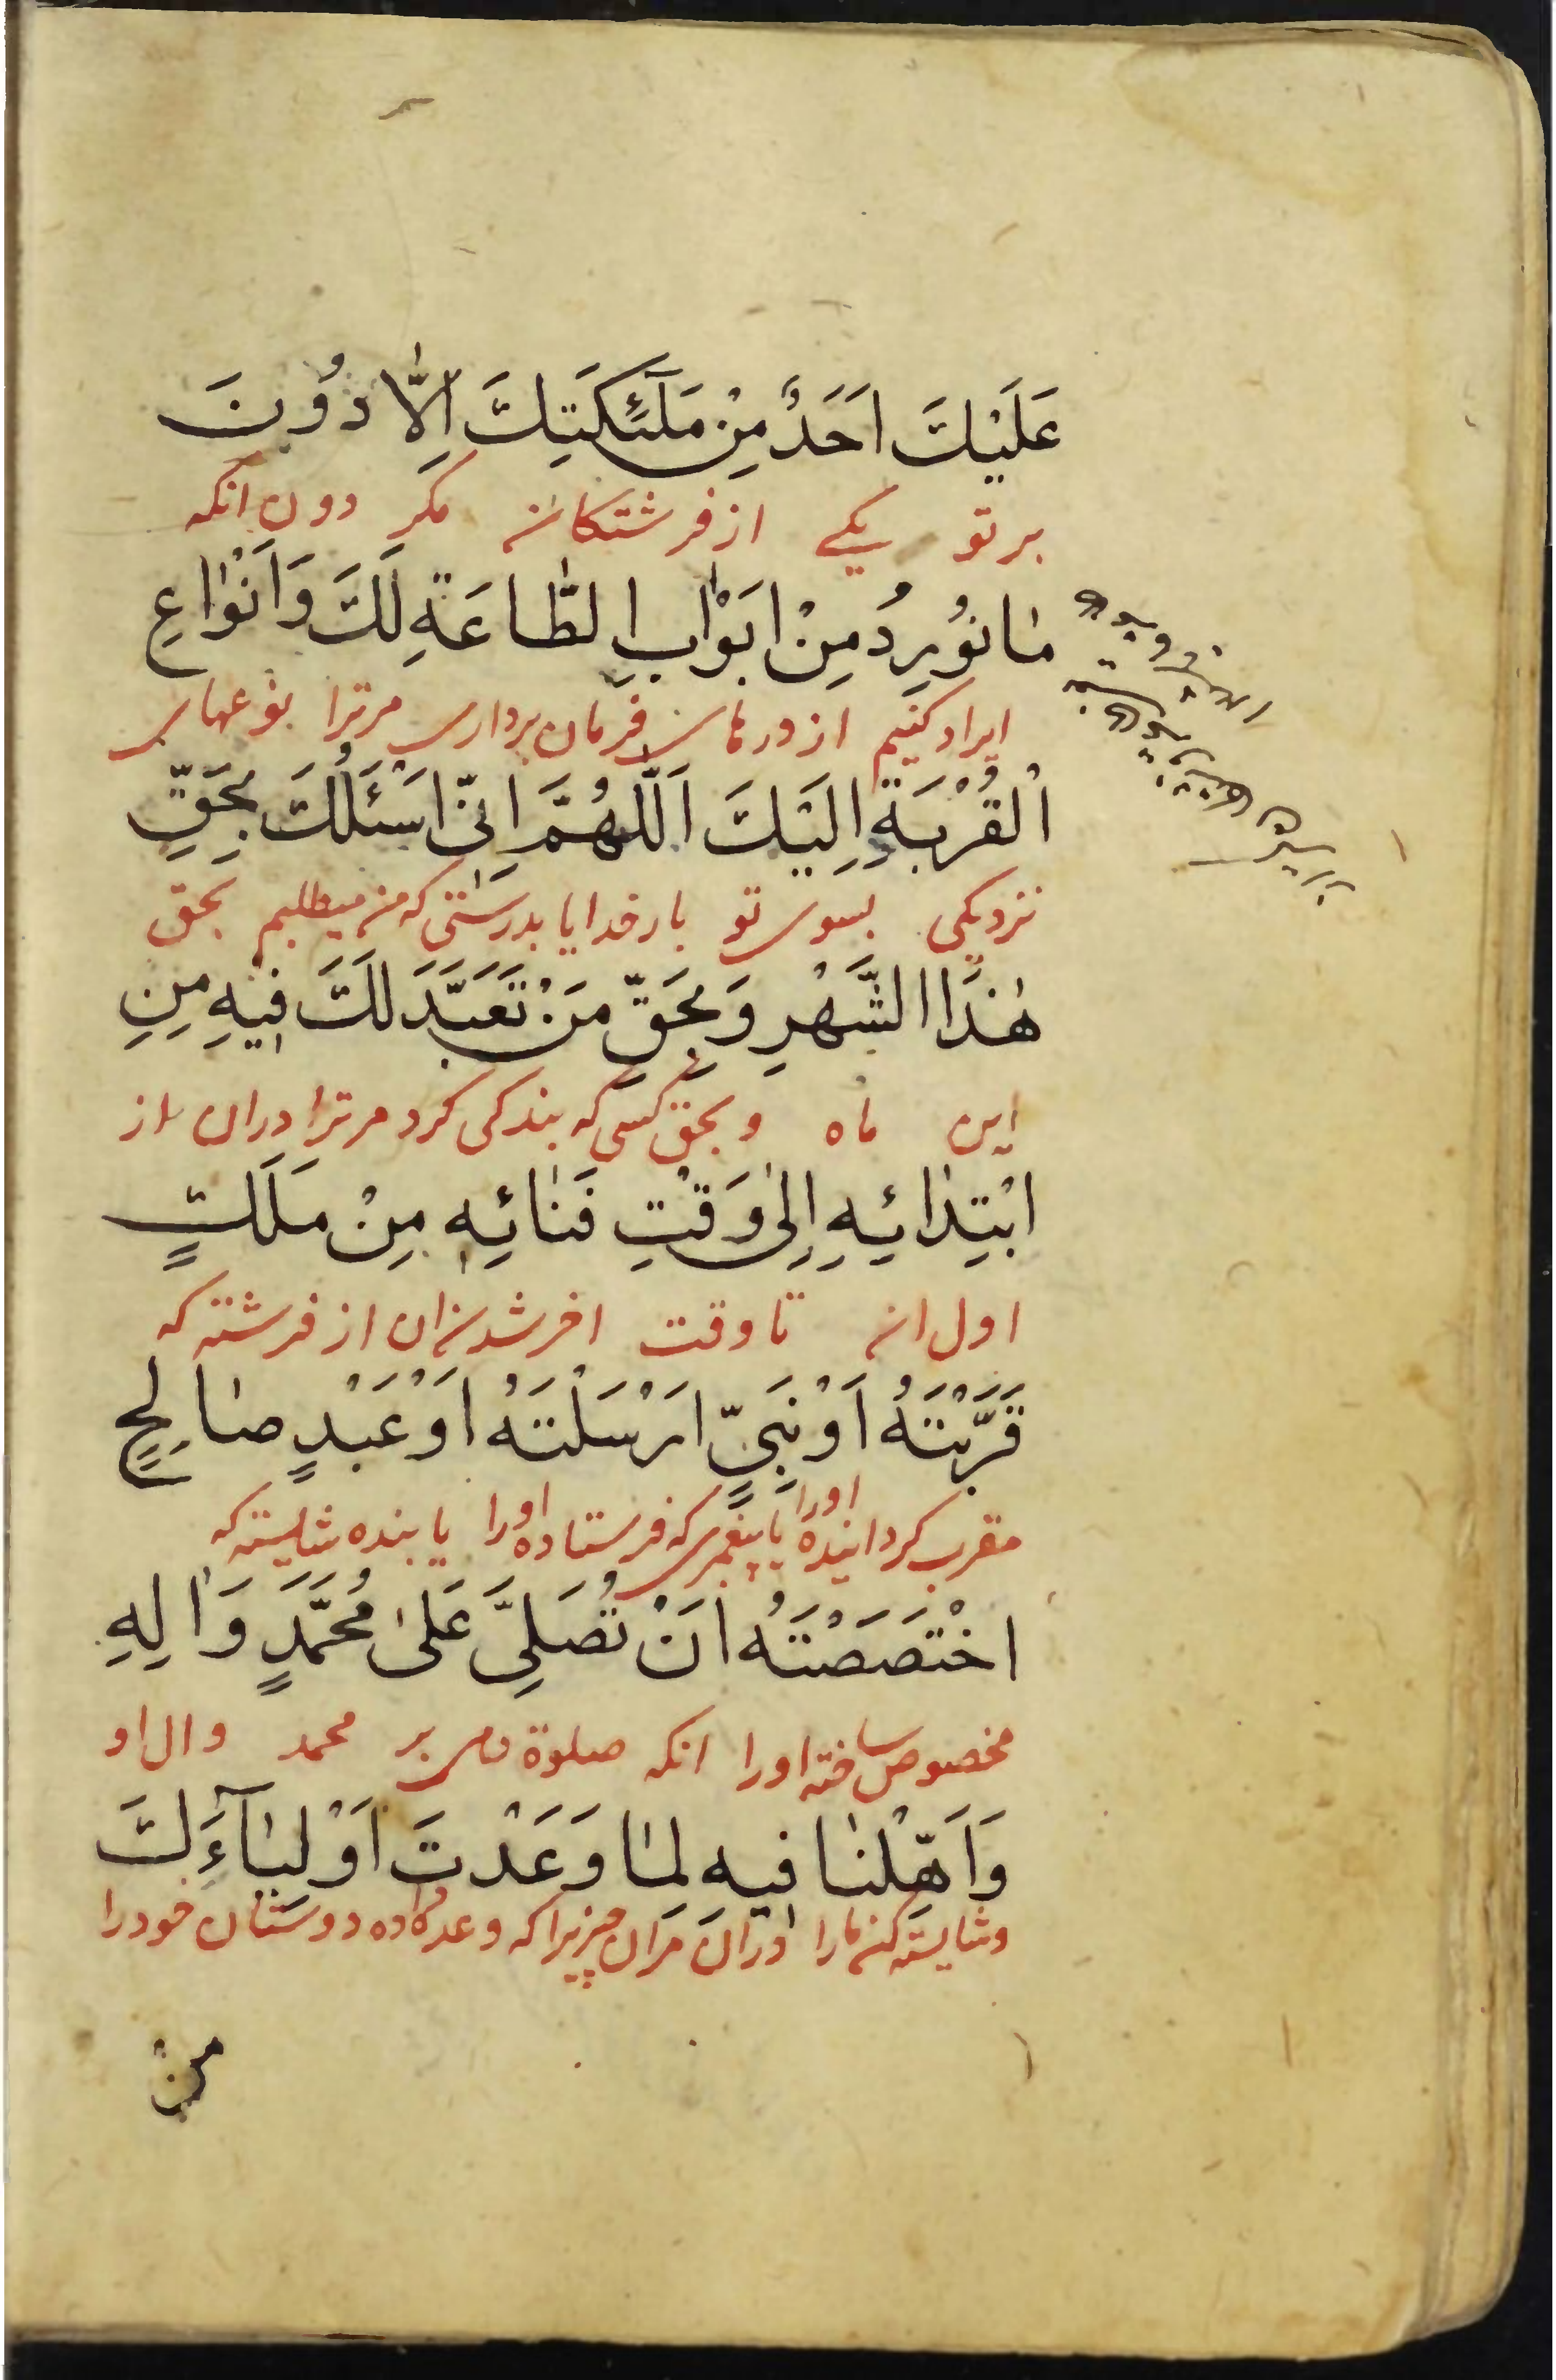 عَلَيْكَ اَحَدٌ مِنْ مَلٰٓئِكَتِكَ اِلَّا دُوْنَ
بر تو یکی از فرشتکان مکر دون انکه
مٰا نُوْرِدُ مِنْ اَبْوٰابِ الطّٰاعَةِ لَكَ وَاَنْوٰاعِ
ایراد کنیم از درهای فرمان برداری مرترا نوعهای
اْلقُرْبَةِ اِلَيْكَ اَللّٰهُمَّ اِنّٖى اَسْئَلُكَ بِحَقِّ
نزدیکی بسوی تو بار خدایا بدرستی که من میطلبم بحق
هٰذَا الشَّهْرِ وَبِحَقِّ مَنْ تَعَبَّدَ لَكَ فٖيْهِ مِنِ
این ماه و بحق کسی که بندکی کرد مرترا دران از
ابْتِدٰائِهِ اِلىٰ وَقْتِ فَنٰائِهٖ مِنْ مَلَكٍ
اول ان تا وقت اخر شدن ان از فرشته که
قَرَّبْتَهُ اَوْ نَبِىٍّ اَرْسَلْتَهُ اَوْ عَبْدٍ صٰالِحٍ
مقرب کردانیده اورا یا پیغمبری که فرستاده اورا یا بنده شایسته که
اخْتَصَصْتَهُ اَنْ تُصَلِّىَ عَلىٰ مُحَمَّدٍ وَاٰلِهِ
مخصوص ساخته اورا انکه صلوة بر محمد و ال او
وَاَهِّلْنٰا فٖيهِ لِمٰا وَعَدْتَ اَوْلِيٰٓاءَكَ
و شایسته کن مارا دران مران چیزیرا که وعده داده دوستان خود را
مِنْ